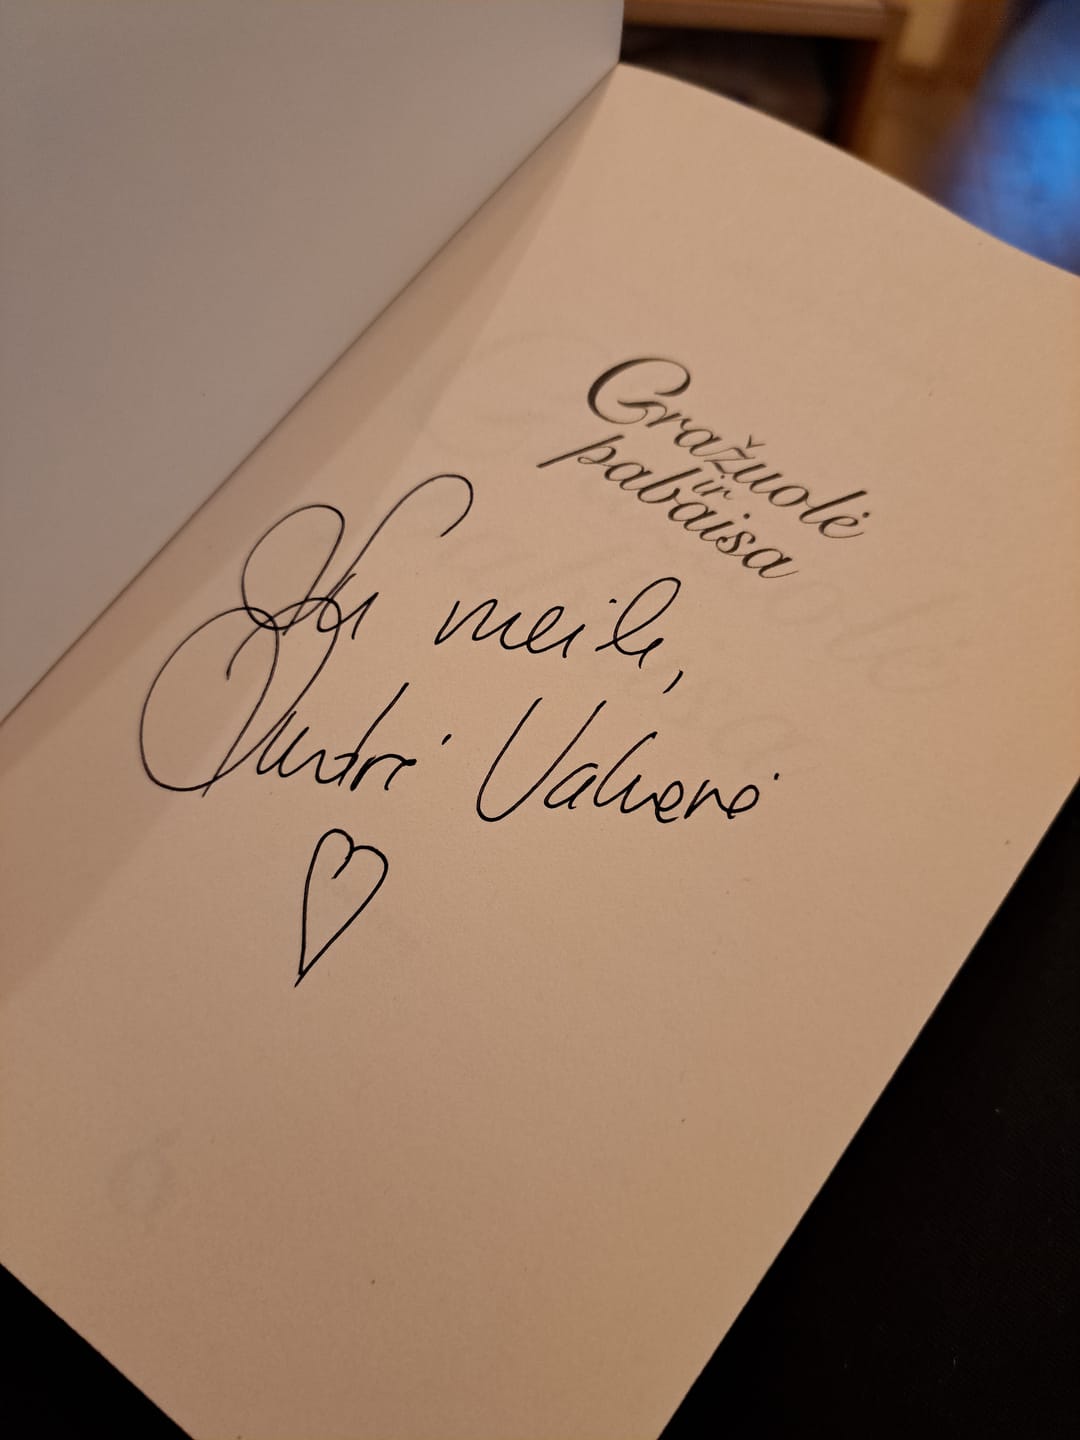 Gražuolė
ir
pabaisa
Su meile,
Valuenė